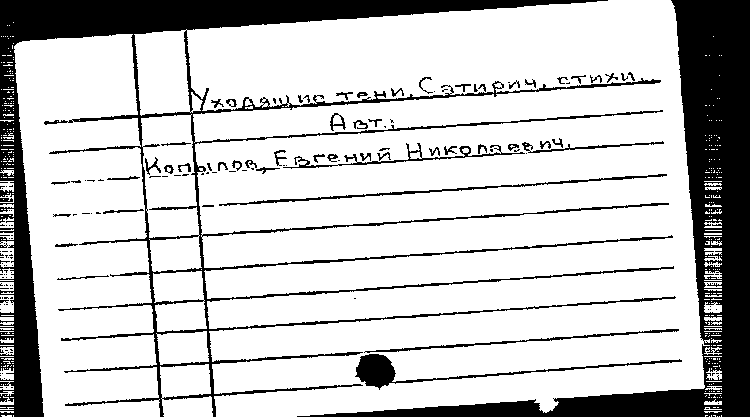 Уходящие тени. Сатирич. стихи...
Авт.:
Копылов, Евгений Николаевич.